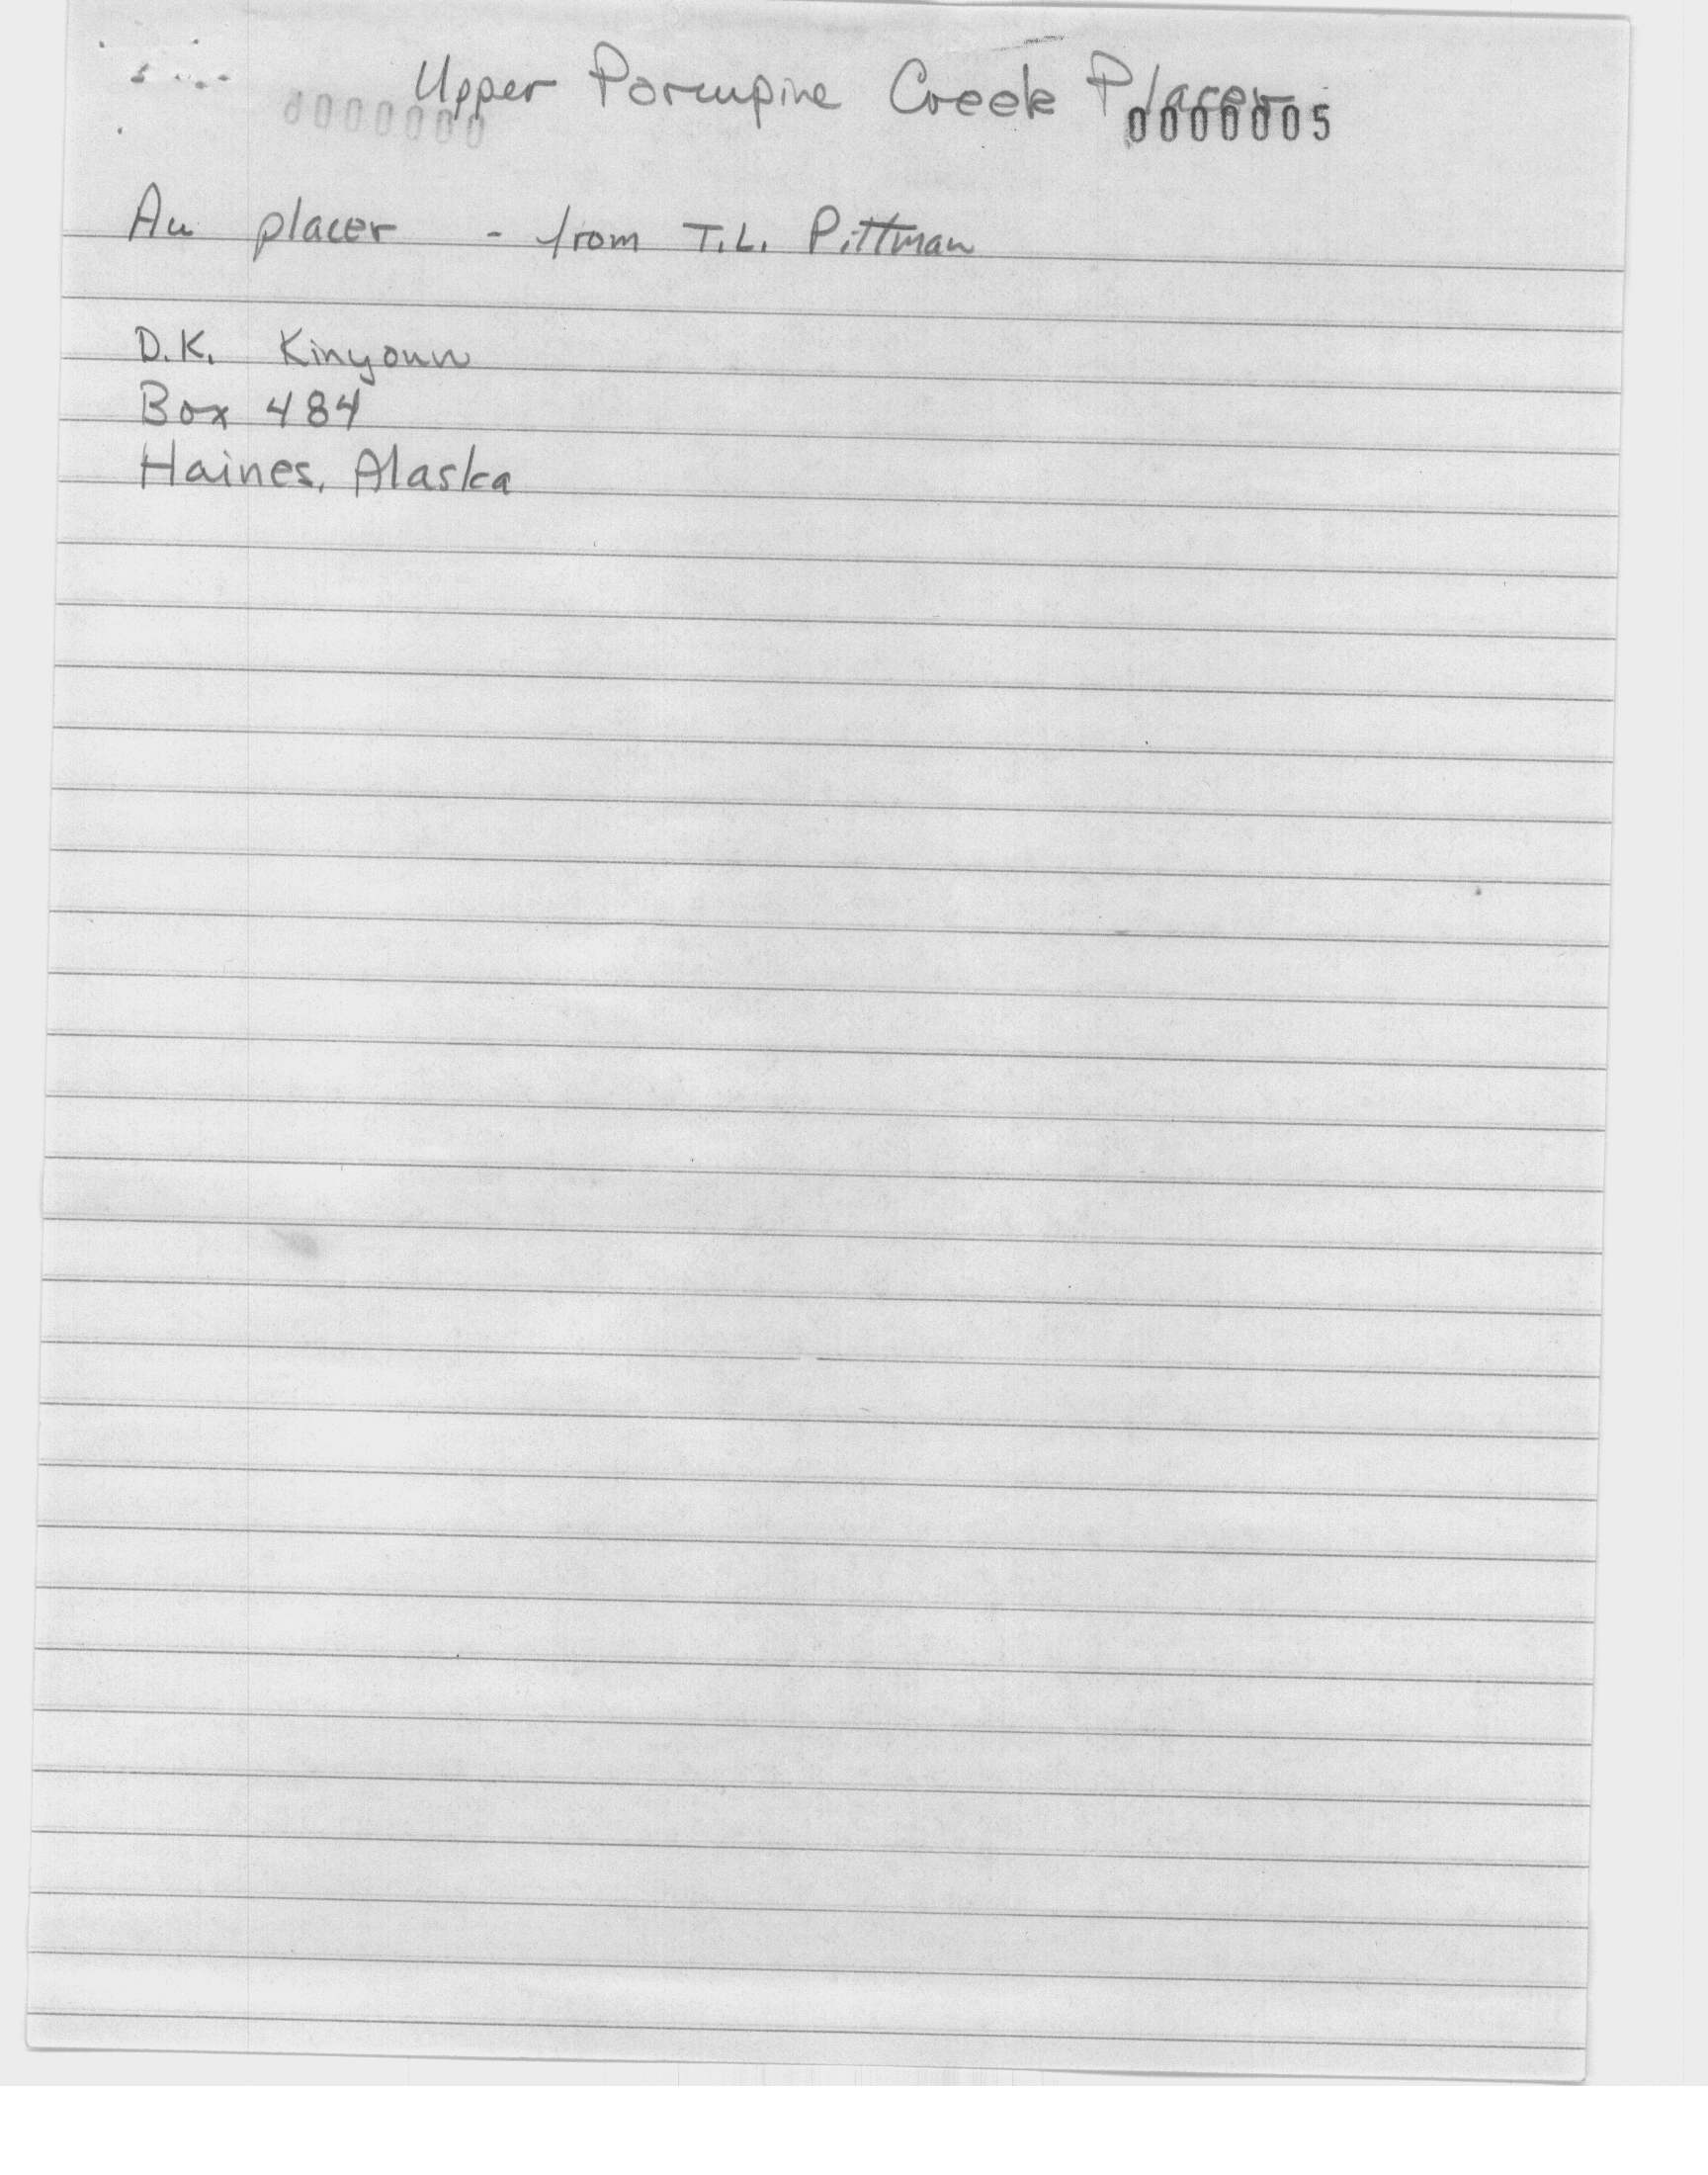 Upper Porcupine Creek Placer
0000000
0000005
Au placer - from T.L. Pittman
D.K. Kinyoun
Box 484
Haines, Alaska